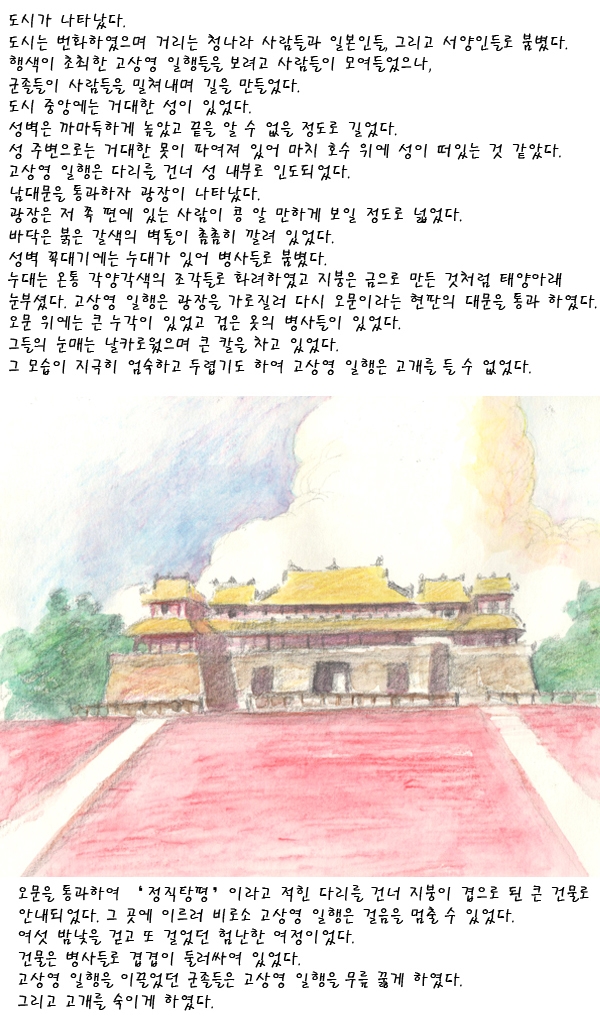 도시가 나타났다.
도시는 번화하였으며 거리는 청나라 사람들과 일본인들, 그리고 서양인들로 붐볐다.
행색이 초췌한 고상영 일행들을 보려고 사람들이 모여들었으나,
군졸들이 사람들을 밀쳐내며 길을 만들었다.
도시 중앙에는 거대한 성이 있었다.
성벽은 까마득하게 높았고 끝을 알 수 없을 정도로 길었다.
성 주변으로는 거대한 못이 파여져 있어 마치 호수 위에 성이 떠있는 것 같았다.
고상영 일행은 다리를 건너 성 내부로 인도되었다.
남대문을 통과하자 광장이 나타났다.
광장은 저 쪽 편에 있는 사람이 콩 알 만하게 보일 정도로 넓었다.
바닥은 붉은 갈색의 벽돌이 촘촘히 깔려 있었다.
성벽 꼭대기에는 누대가 있어 병사들로 붐볐다.
누대는 온통 각양각색의 조각들로 화려하였고 지붕은 금으로 만든 것처럼 태양아래
눈부셨다. 고상영 일행은 광장을 가로질러 다시 오문이라는 현판의 대문을 통과 하였다.
오문 위에는 큰 누각이 있었고 검은 옷의 병사들이 있었다.
그들의 눈매는 날카로웠으며 큰 칼을 차고 있었다.
그 모습이 지극히 엄숙하고 두렵기도 하여 고상영 일행은 고개를 들 수 없었다.
오문을 통과하여 '정직탕평' 이라고 적힌 다리를 건너 지붕이 겹으로 된 큰 건물로
안내되었다. 그 곳에 이르러 비로소 고상영 일행은 걸음을 멈출 수 있었다.
여섯 밤낮을 걷고 또 걸었던 험난한 여정이었다.
건물은 병사들로 겹겹이 둘러싸여 있었다.
고상영 일행을 이끌었던 군졸들은 고상영 일행을 무릎 꿇게 하였다.
그리고 고개를 숙이게 하였다.